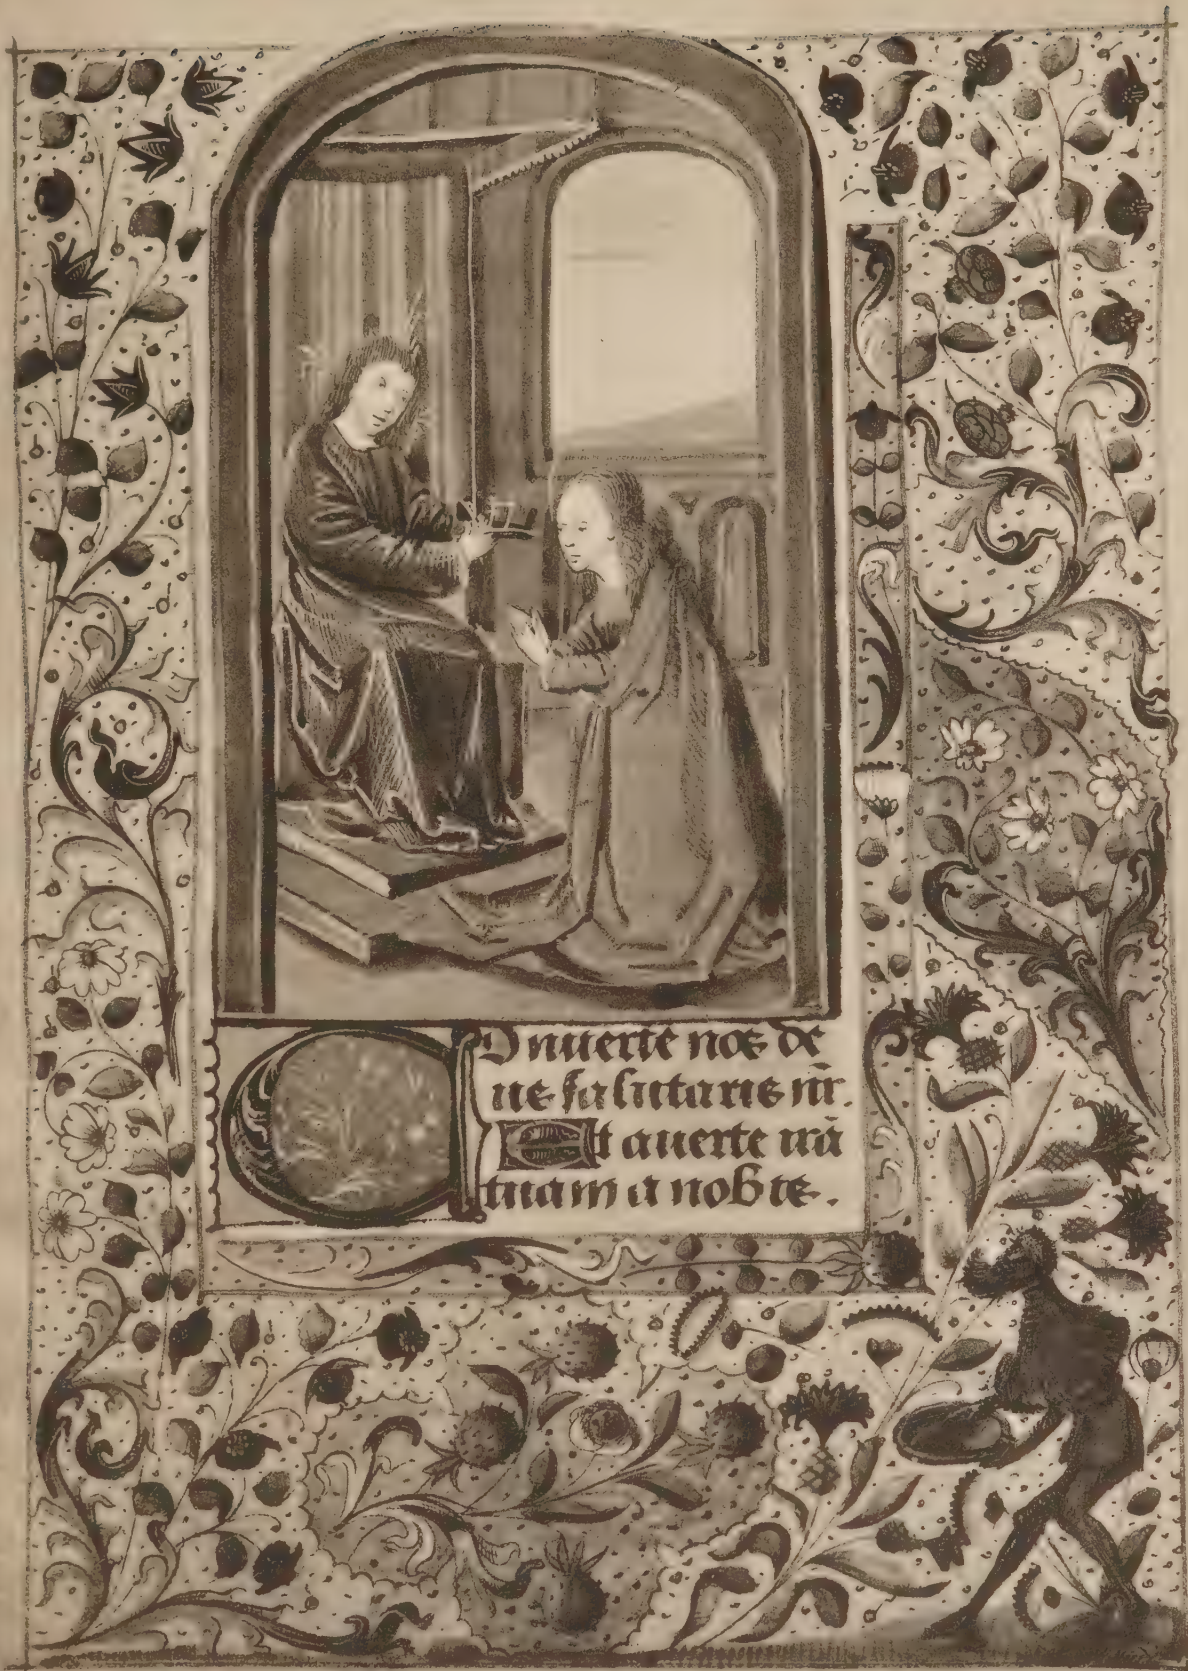 COnuerte nos de
us salutaris nr̄.
Et auerte irā
tuam a nobis.